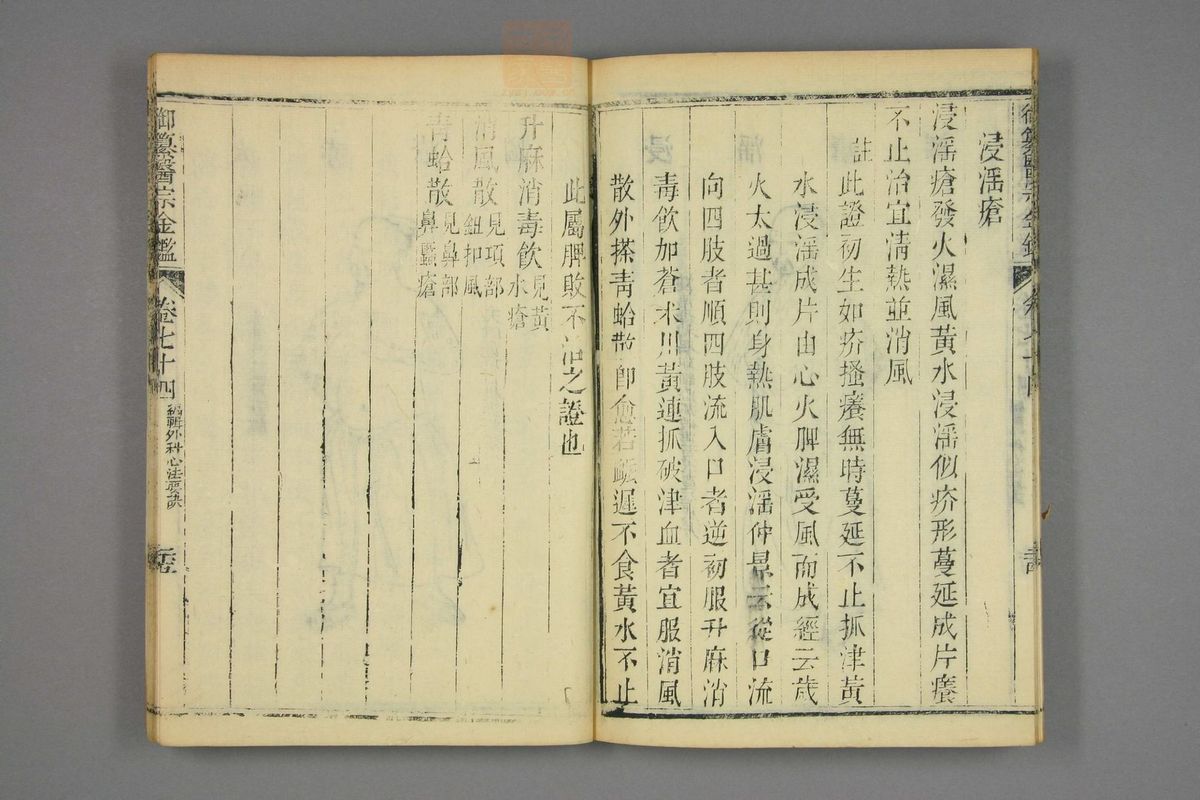 浸淫瘡
浸淫瘡發火濕風黃水浸淫似疥形蔓延成片癢
不止治宜清熱並消風
註此證初生如疥搔癢無時蔓延不止抓津黃
水浸淫成片由心火脾濕受風而成經云歲
火太過甚則身熱肌膚浸淫仲景云從口流
向四肢者順四肢流入口者逆初服升麻消
毒飲加蒼朮川黃連抓破津血者宜服消風
散外搽青蛤散卽愈若 遲不食黃水不止
此屬脾敗不治之證也
升麻消毒飲見黃水瘡
消風散見項部鈕扣風
青蛤散見鼻部鼻䘌瘡
御纂醫宗金鑑 卷七十四 編輯外科心法要訣